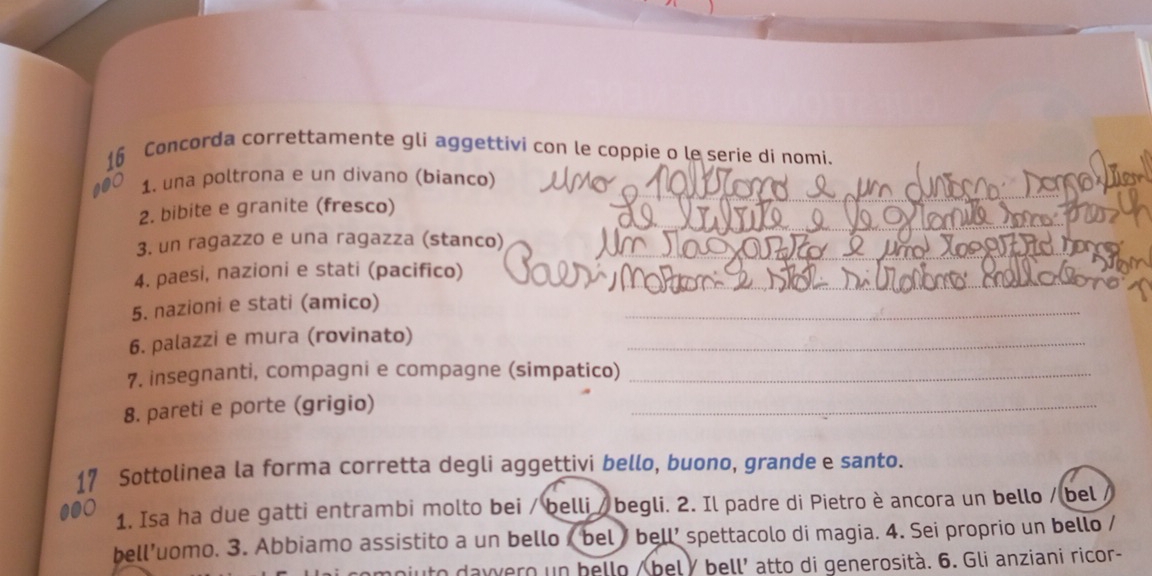 16 Concorda correttamente gli aggettivi con le coppie o le serie di nomi.
1. una poltrona e un divano (bianco) una poltrona e un divano sono
2. bibite e granite (fresco) le bibite e le granite sono
3. un ragazzo e una ragazza (stanco) Un ragazzo e una ragazza sono
4. paesi, nazioni e stati (pacifico) Paesi, nazioni e stati
5. nazioni e stati (amico)
6. palazzi e mura (rovinato)
7. insegnanti, compagni e compagne (simpatico)
8. pareti e porte (grigio)
17 Sottolinea la forma corretta degli aggettivi bello, buono, grande e santo.
1. Isa ha due gatti entrambi molto bei / belli / begli. 2. Il padre di Pietro è ancora un bello / bel /
bell'uomo. 3. Abbiamo assistito a un bello / bel / bell' spettacolo di magia. 4. Sei proprio un bello /
compiuto davvero un bello / bel / bell' atto di generosità. 6. Gli anziani ricor-